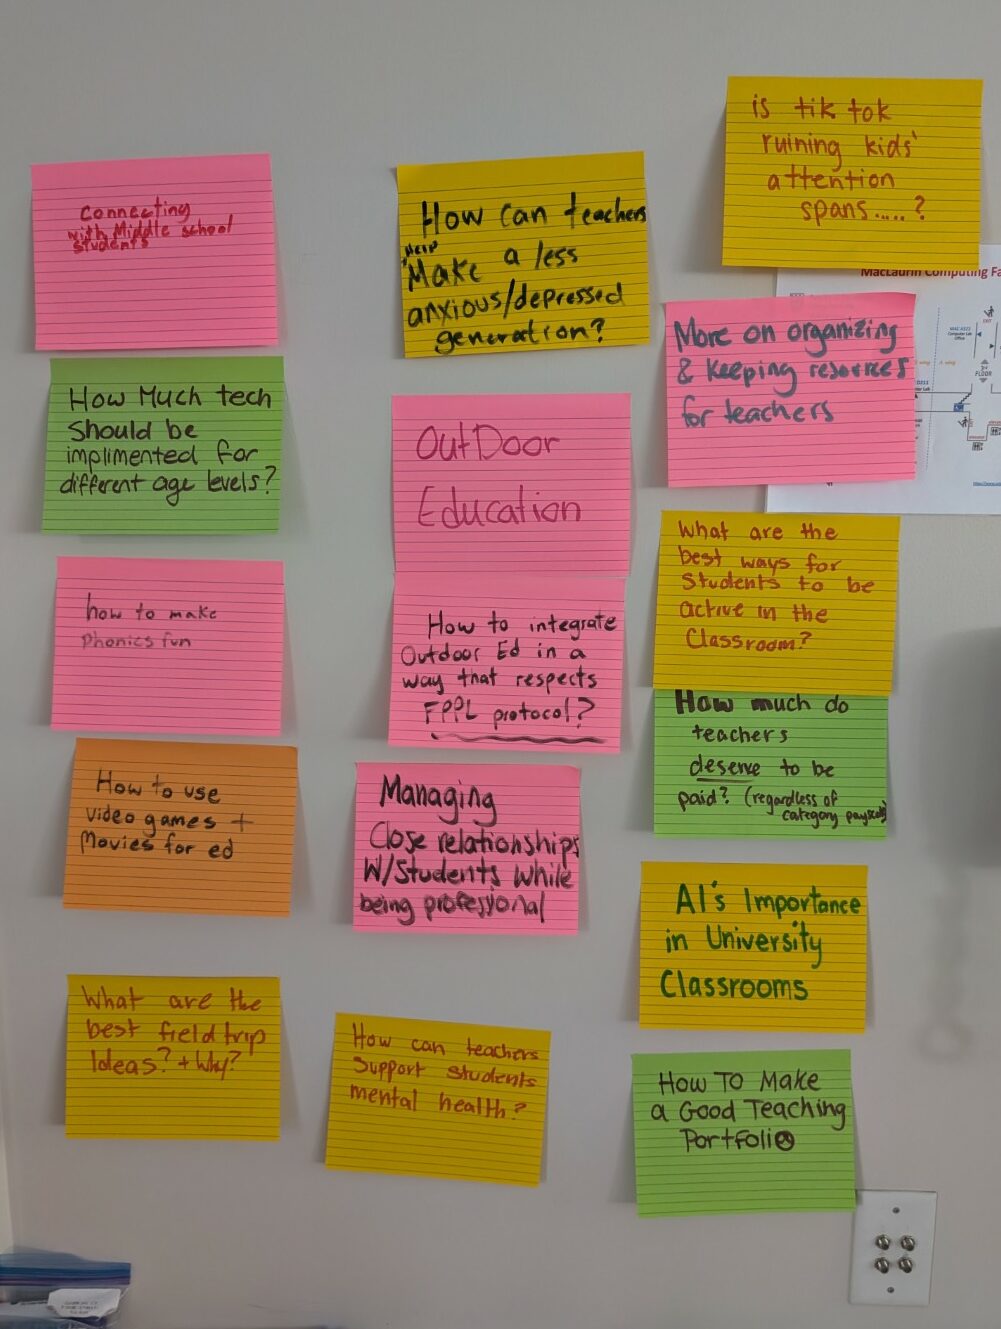 Connecting
with Middle school
students
How Much tech
should be
implimented for
different age levels?
how to make
phonics fun
How to use
video games +
Movies for ed
What are the
best field trip
Ideas? + Why?
How can teachers
help
Make a less
anxious/depressed
generation?
OutDoor
Education
How to integrate
Outdoor Ed in a
way that respects
FPPL protocol?
Managing
Close relationships
W/Students while
being professional
How can teachers
support students
mental health?
is tik tok
ruining kids'
attention
spans.....?
MacLaurin Computing Fa
MAC A523
Computer Lab
Office
EXIT
3RD
FLOOR
A wing
More on organizing
& keeping resources
for teachers
What are the
best ways for
students to be
active in the
Classroom?
How much do
teachers
deserve to be
paid? (regardless of
category payscale)
AI's Importance
in University
Classrooms
How To Make
a Good Teaching
Portfolio